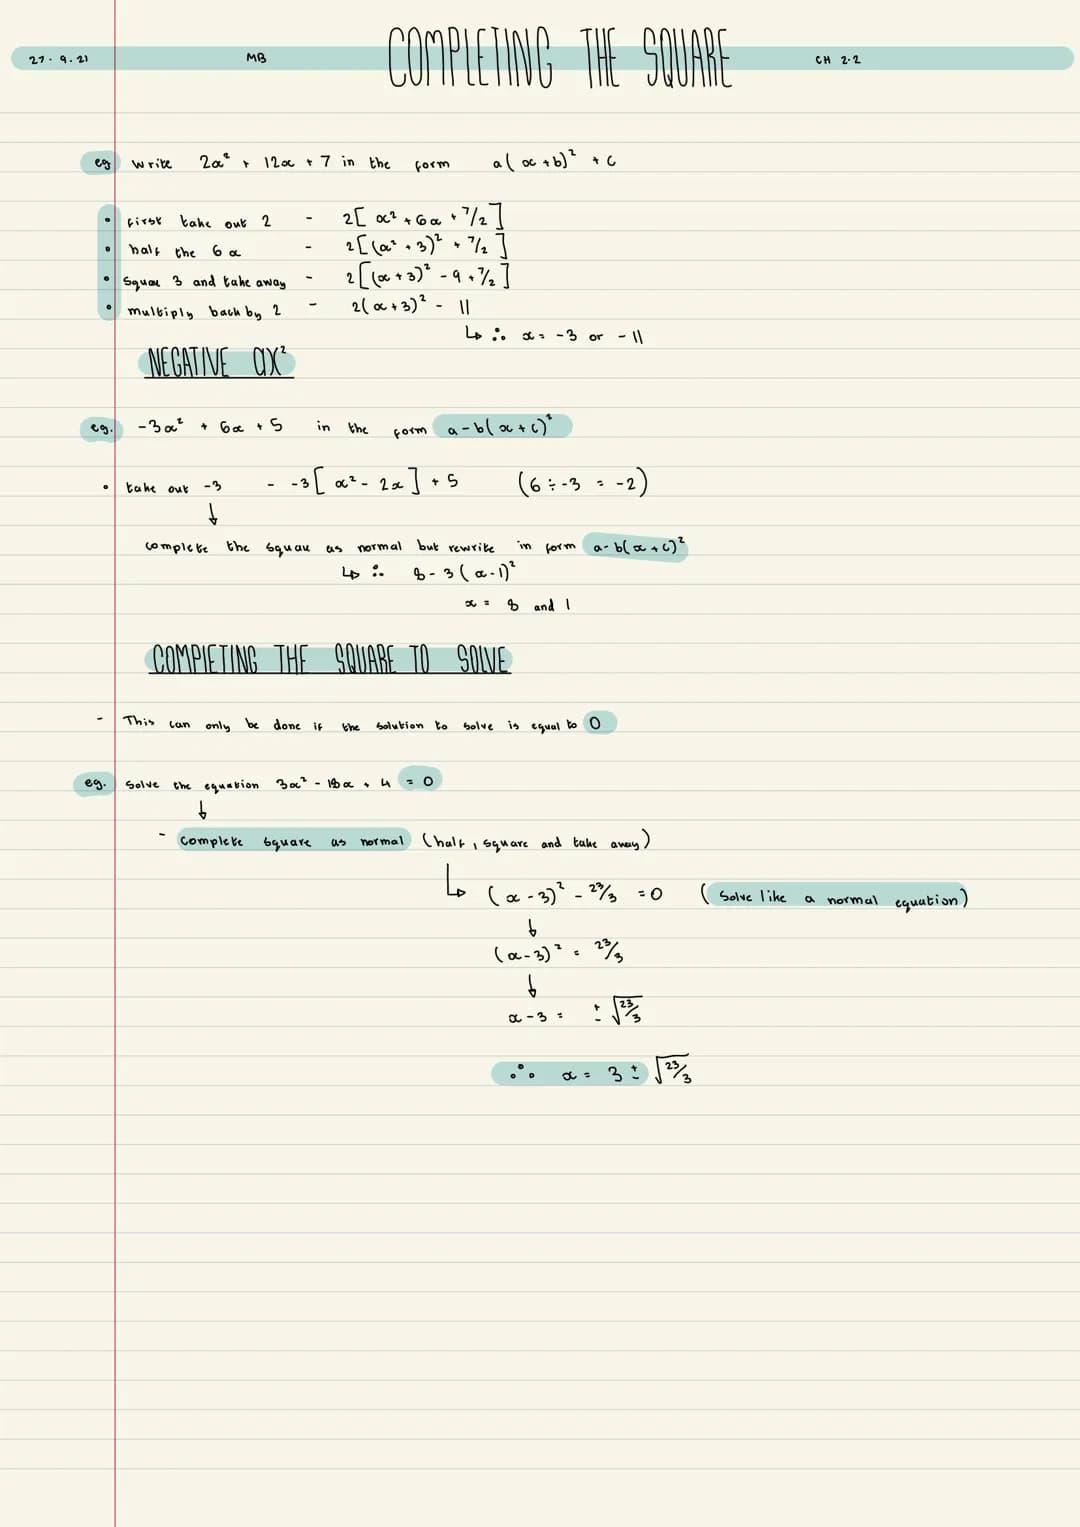 27.9.21 MB COMPLETING THE SQUARE CH 2.2
eg write 2x² + 12x + 7 in the form a(x+b)² + c
• first take out 2 - 2[x² + 6x + 7/2]
• half the 6x - 2[(x² + 3)² + 7/2]
• Square 3 and take away - 2[(x+3)² - 9 + 7/2]
• multiply back by 2 - 2(x+3)² - 11
↳ ∴ x = -3 or -11
NEGATIVE ax²
eg. -3x² + 6x + 5 in the form a-b(x+c)²
• take out -3 - -3[x² - 2x] + 5 (6 ÷ -3 = -2)
↓
complete the square as normal but rewrite in form a-b(x+c)²
↳ ∴ 8-3(x-1)²
x = 8 and 1
COMPLETING THE SQUARE TO SOLVE
- This can only be done if the solution to solve is equal to 0
eg. Solve the equation 3x² - 18x + 4 = 0
↓
- Complete square as normal (half, square and take away)
↳ (x-3)² - 23/3 = 0 (Solve like a normal equation)
↓
(x-3)² = 23/3
↓
x-3 = ±√23/3
∴ x = 3 ± √23/3